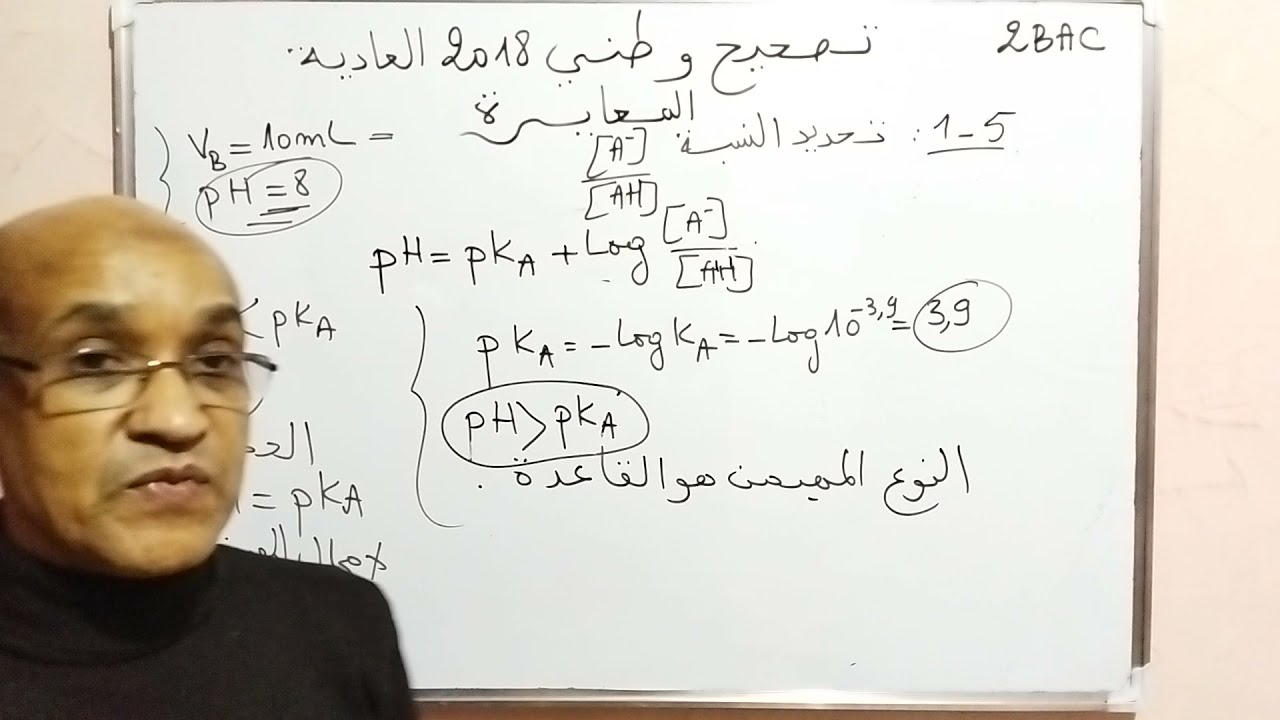 2BAC
تصحيح وطني 2018 العادية
المعايرة
1-5: تحديد النسبة [A⁻]/[AH]
V_B = 10mL =
pH = 8
pH = pK_A + Log [A⁻]/[AH]
< pK_A
pK_A = -Log K_A = -Log 10^-3,9 = 3,9
pH > pK_A
النوع المهيمن هو القاعدة.
= pK_A